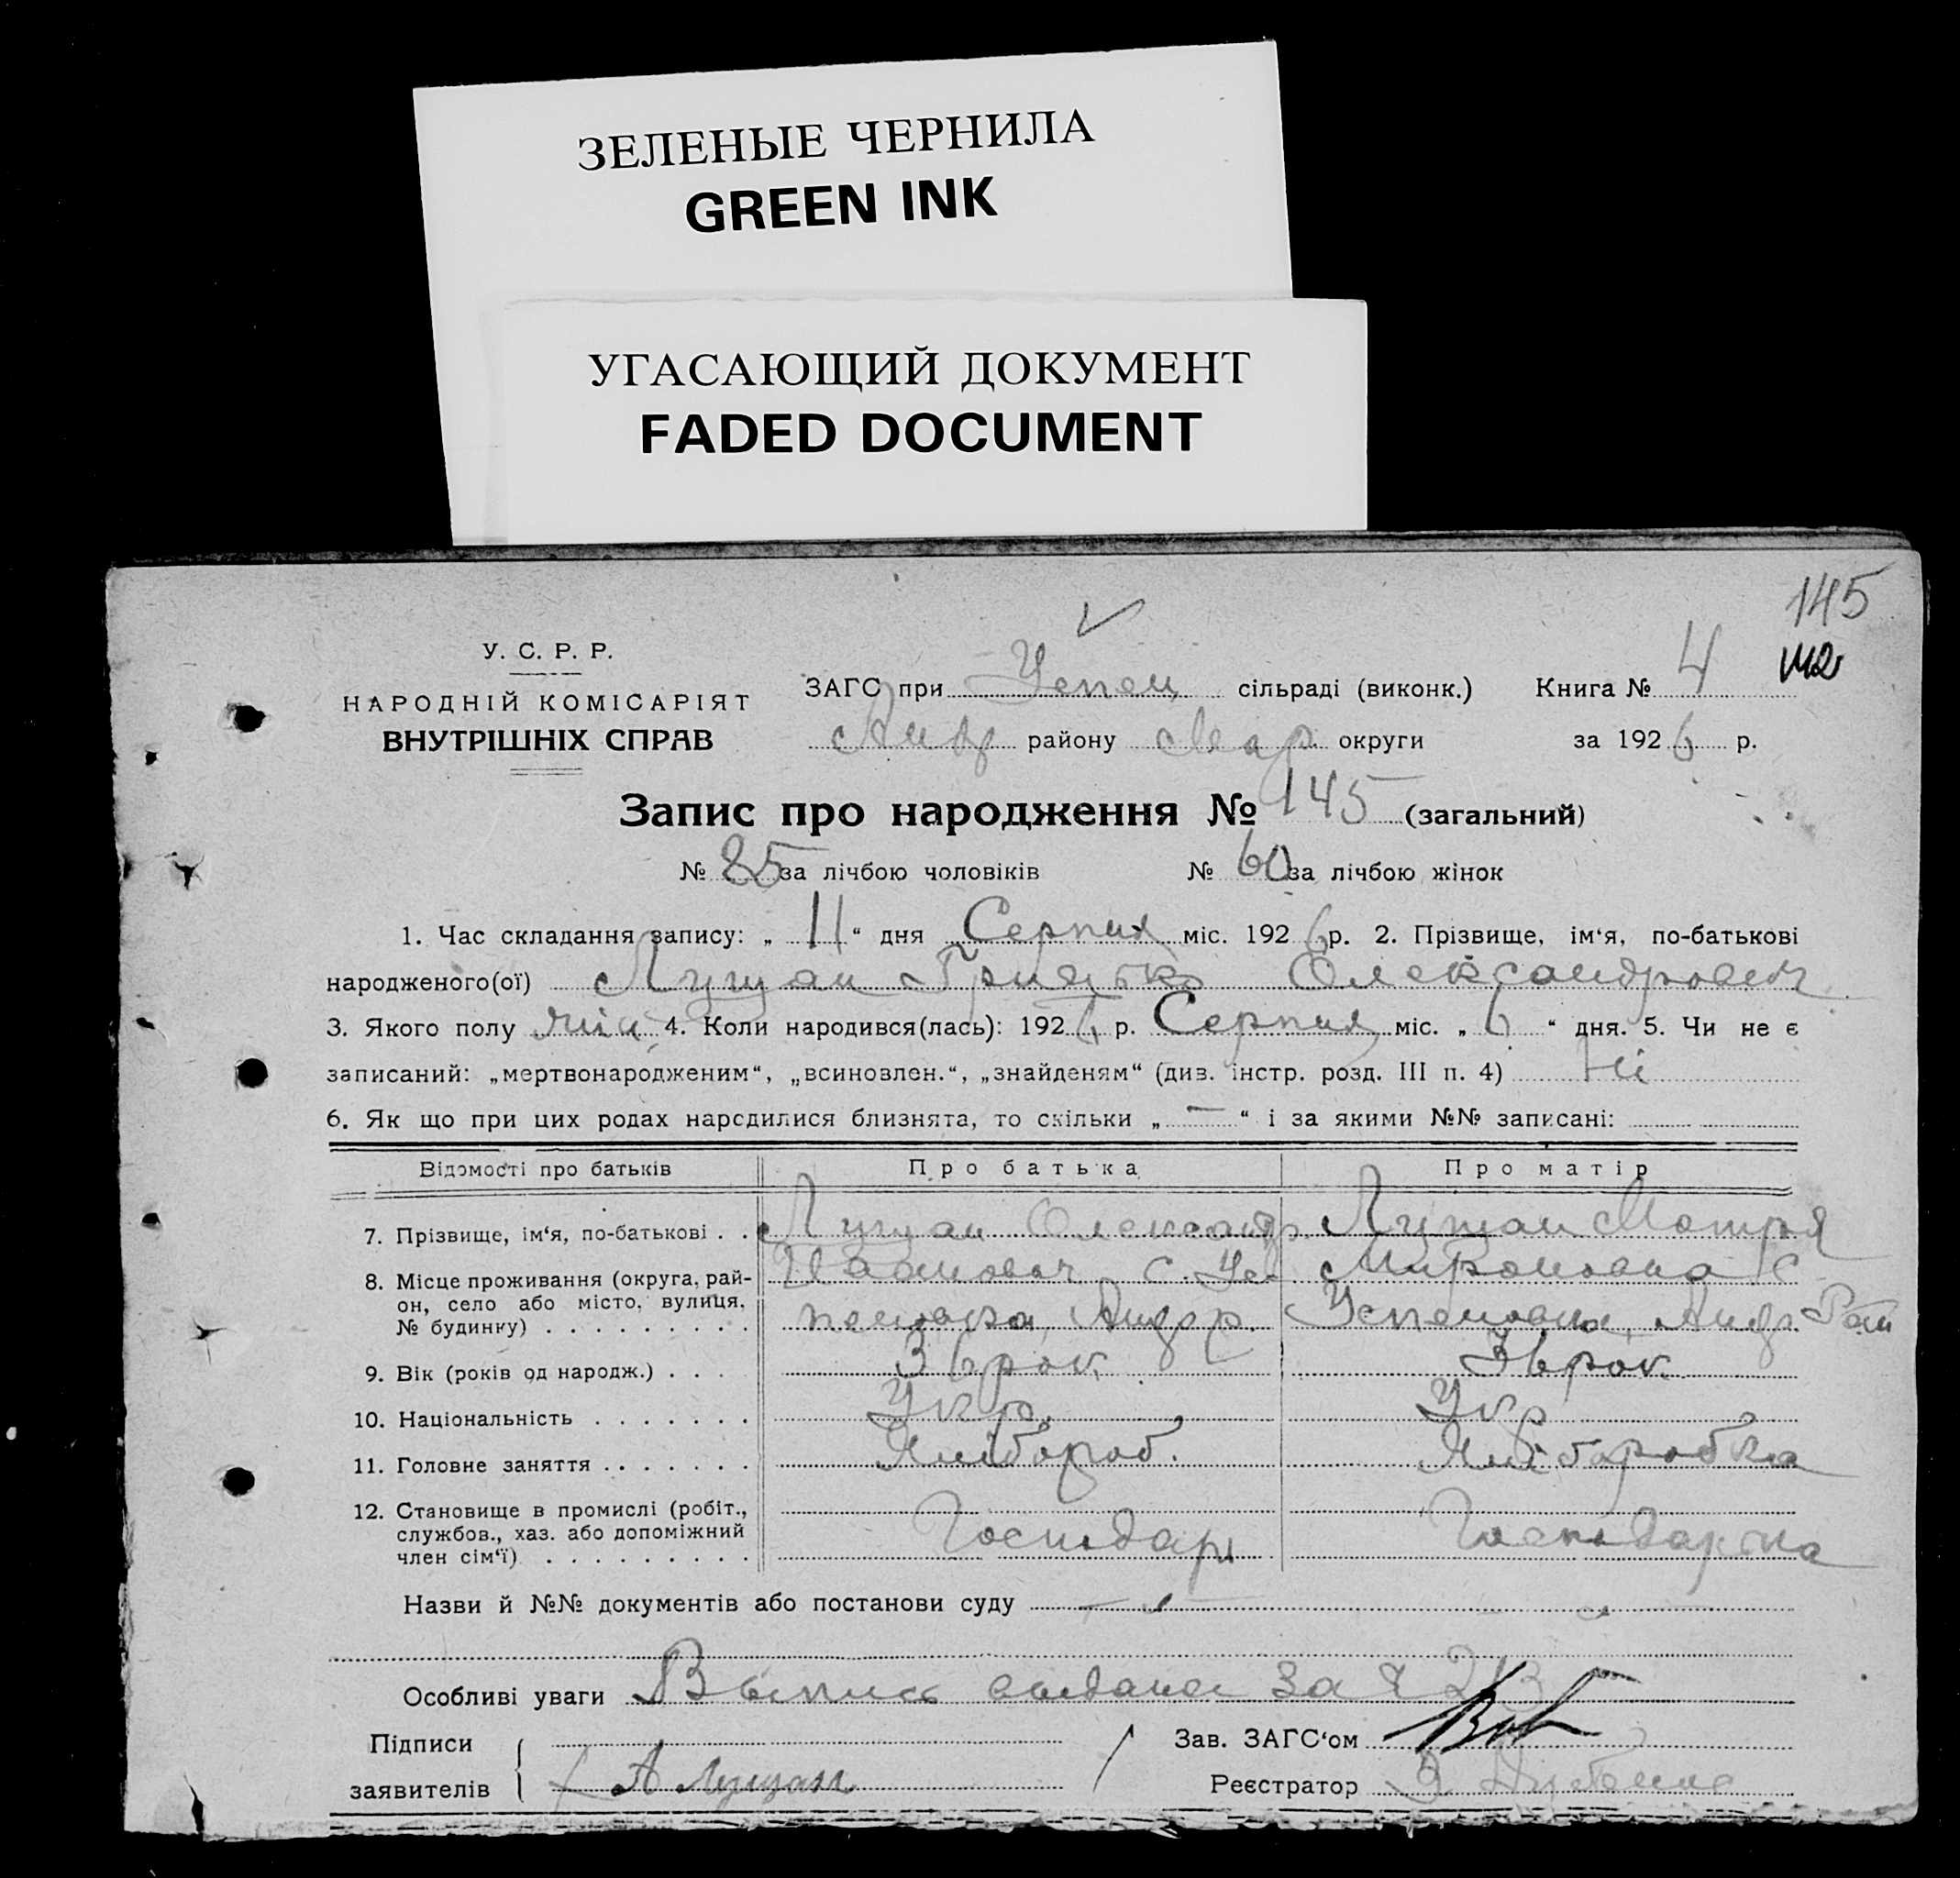 ЗЕЛЕНЫЕ ЧЕРНИЛА
GREEN INK
УГАСАЮЩИЙ ДОКУМЕНТ
FADED DOCUMENT
145
У. С. Р. Р.
НАРОДНІЙ КОМІСАРІЯТ
ВНУТРІШНІХ СПРАВ
ЗАГС при сільраді (виконк.) Книга № 4
Андр району Мар округи за 1926 р.
Запис про народження № 145 (загальний)
№ 85 за лічбою чоловіків № 60 за лічбою жінок
1. Час складання запису: „ 11 “ дня Серпня міс. 1926 р. 2. Прізвище, ім‘я, по-батькові
народженого(ої) Лущан Грицько Олександрович
3. Якого полу 4. Коли народився(лась): 1926 р. Серпня міс. „ 6 “ дня. 5. Чи не є
записаний: „мертвонародженим“, „всиновлен.“, „знайденям“ (див. інстр. розд. III п. 4) Ні
6. Як що при цих родах народилися близнята, то скільки „ — “ і за якими №№ записані:
Відомості про батьків Про батька Про матір
7. Прізвище, ім‘я, по-батькові . . Лущан Олександр Лущан Мотря
8. Місце проживання (округа, рай- Іванович с. Ус- Мироновна с
он, село або місто, вулиця, пеновка, Андр р. Успеновка, Андр
№ будинку) . . . . . . . . .
9. Вік (років од народж.) . . . . 36 рок. 36 рок.
10. Національність . . . . . . . Укр. Укр
11. Головне заняття . . . . . . . Хлібороб. Хліборобка
12. Становище в промислі (робіт., Господар Господарка
службов., хаз. або допоміжний
член сім‘ї) . . . . . . . . .
Назви й №№ документів або постанови суду
Особливі уваги Выпись выдана за № 213
Підписи Зав. ЗАГС‘ом
заявителів А Лущан Реєстратор